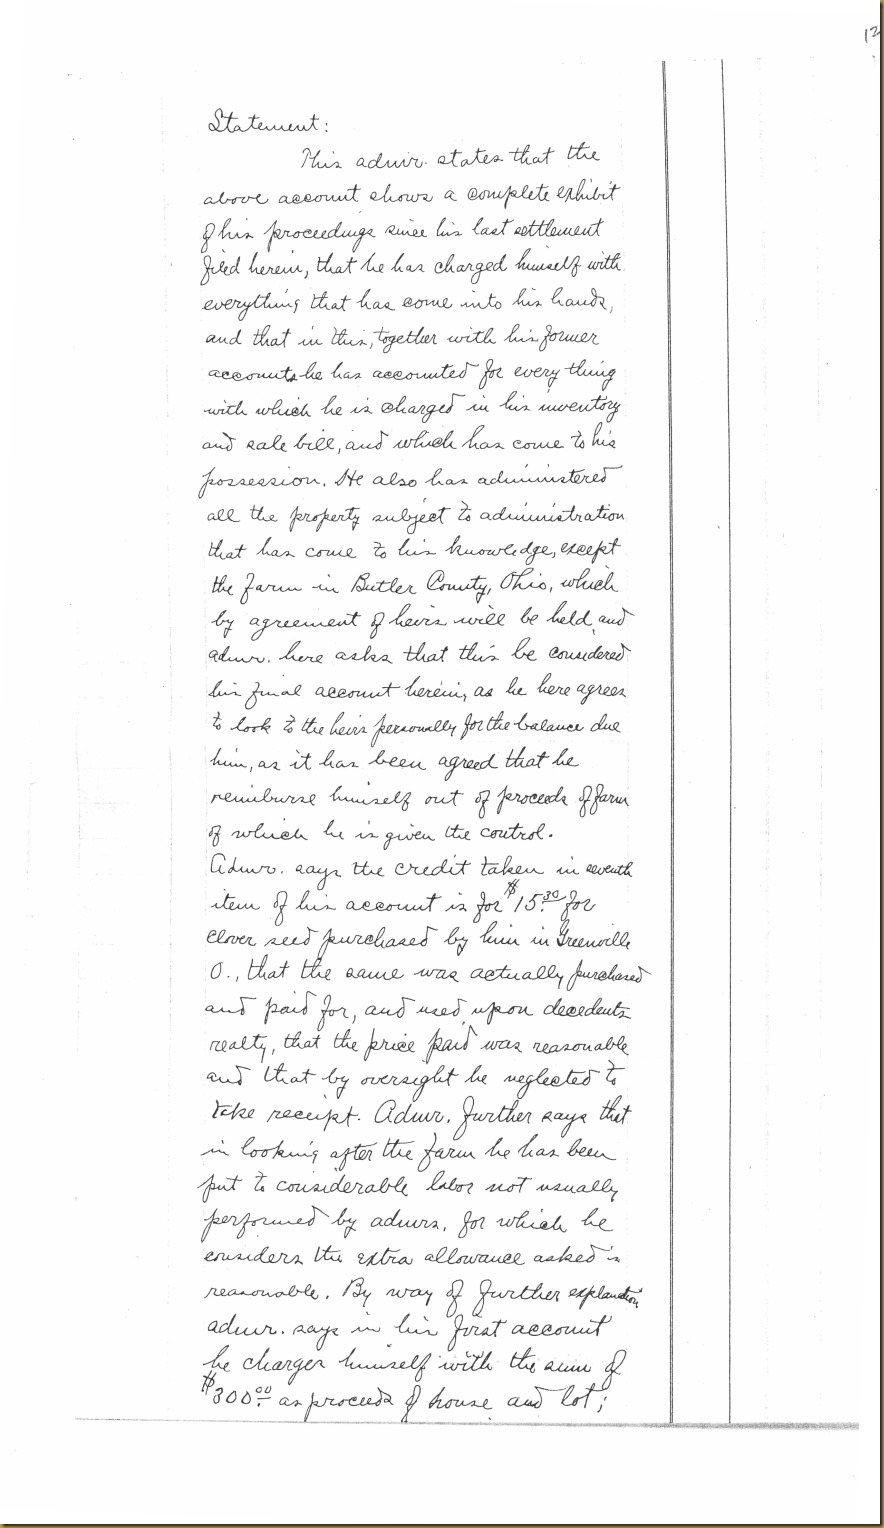 12
Statement:
This admr. states that the
above account shows a complete exhibit
of his proceedings since his last settlement
filed herein, that he has charged himself with
everything that has come into his hands,
and that in this, together with his former
accounts he has accounted for every thing
with which he is charged in his inventory
and sale bill, and which has come to his
possession. He also has administered
all the property subject to administration
that has come to his knowledge, except
the farm in Butler County, Ohio, which
by agreement of heirs will be held, and
admr. here asks that this be considered
his final account herein, as he here agrees
to look to the heirs personally for the balance due
him, as it has been agreed that he
reimburse himself out of proceeds of farm
of which he is given the control.
Admr. says the credit taken in seventh
item of his account is for $15.30 for
clover seed purchased by him in Greenville
O., that the same was actually purchased
and paid for, and used upon decedents
realty, that the price paid was reasonable
and that by oversight he neglected to
take receipt. Admr. further says that
in looking after the farm he has been
put to considerable labor not usually
performed by admrs. for which he
considers the extra allowance asked is
reasonable. By way of further explanation
admr. says in his first account
he charges himself with the sum of
$300.00 as proceeds of house and lot;